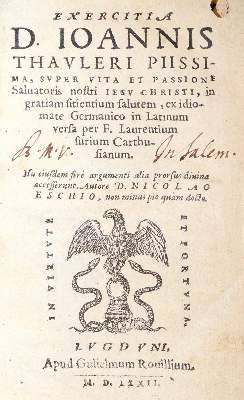 EXERCITIA
D. IOANNIS
THAVLERI PIISSI-
MA, SVPER VITA ET PASSIONE
Saluatoris nostri IESV CHRISTI, in
gratiam sitientium salutem, ex idio-
mate Germanico in Latinum
versa per F. Laurentium
surium Carthu-
sianum.
In Salem.
eiusdem ferè argumenti alia prorsus diuina
accesserunt, Autore D. NICOLAO
ESCHIO, non minus pio quam docto.
IN VIRTVTE
ET FORTVNA.
LVGDVNI,
Apud Gulielmum Rouillium.
M. D. LXXII.